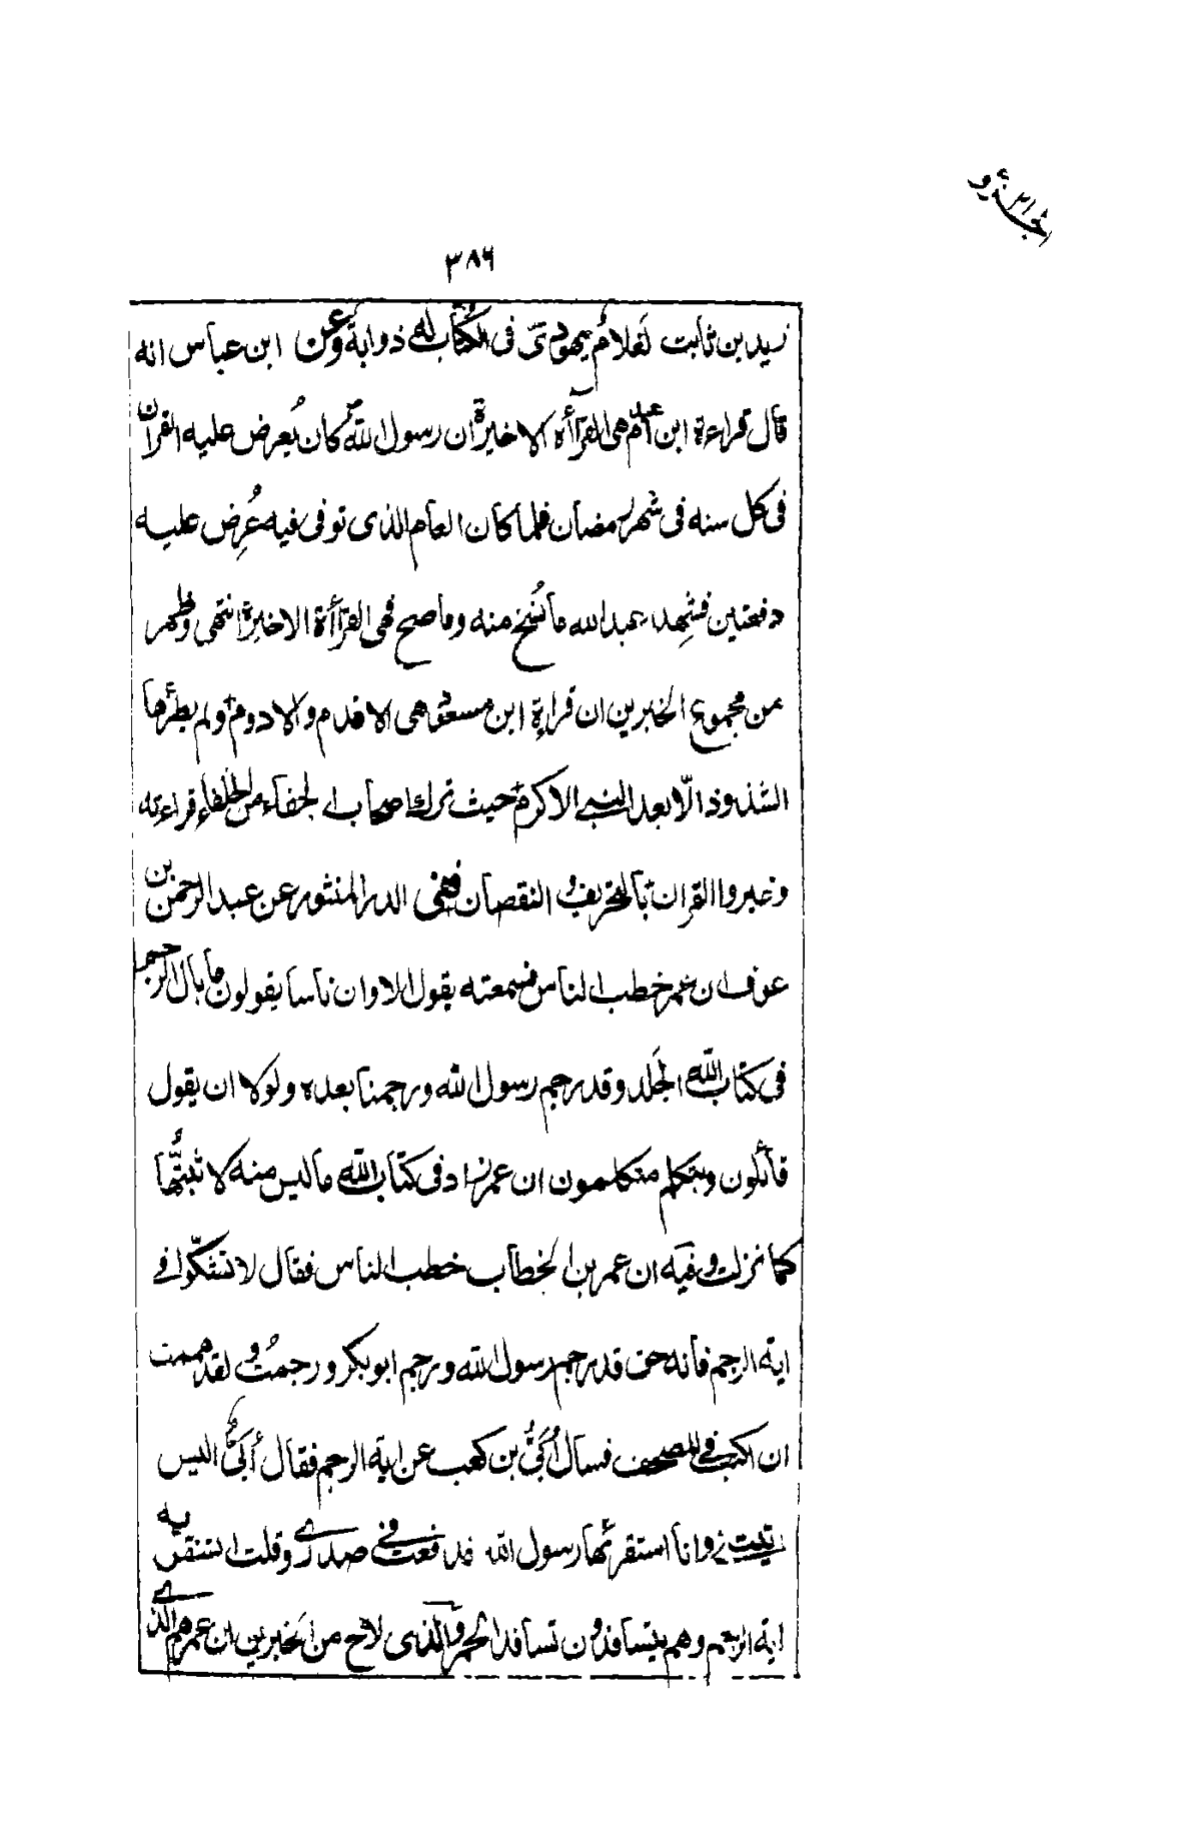 الجزؤ ٢١
٣٨٦
زيد بن ثابت لغلام يهودي في الكتاب له ذوابة وعن ابن عباس انه
قال قراءة ابن ام عبد هي القرآأة الاخيرة ان رسول الله كان يُعرض عليه القران
في كل سنه في شهر رمضان فلما كان العام الذي توفي فيه عُرِض عليه
دفعتين فشهد عبد الله ما نُسخ منه وما صح فهي القرآأة الاخيرة انتهى وظهر
من مجموع الخبرين ان قراءة ابن مسعود هي الاقدم والادوم ولم يطرأها
الشذوذ الّا بعد النبي الاكرم حيث ترك اصحاب الجفاء من الخلفاء قراءته
وغيروا القران بالتحريف و النقصان ففي الدر المنثور عن عبد الرحمن بن
عوف ان عمر خطب الناس فسمعته يقول الا وان ناسا يقولون ما بال الرجم
في كتاب الله الجَلد وقد رجم رسول الله ورجمنا بعده ولولا ان يقول
قائلون ويتكلم متكلمون ان عمر زاد في كتاب الله ما ليس منه لاثبتُّها
كما نزلت وفيه ان عمر بن الخطاب خطب الناس فقال لا تشكّوا في
اية الرجم فانه حق قد رجم رسول الله ورجم ابو بكر ورجمتُ و لقد هممت
ان اكتب في المصحف فسال اُبَيُّ بن كعب عن اية الرجم فقال اُبَيُّ اليس
اتيتني وانا استقرئها رسول الله فدفعت في صدري وقلت استقرئه
اية الرجم وهم يتسافدون تسافد الحمر والذي لاح من الخبرين ان عمر هم الذي